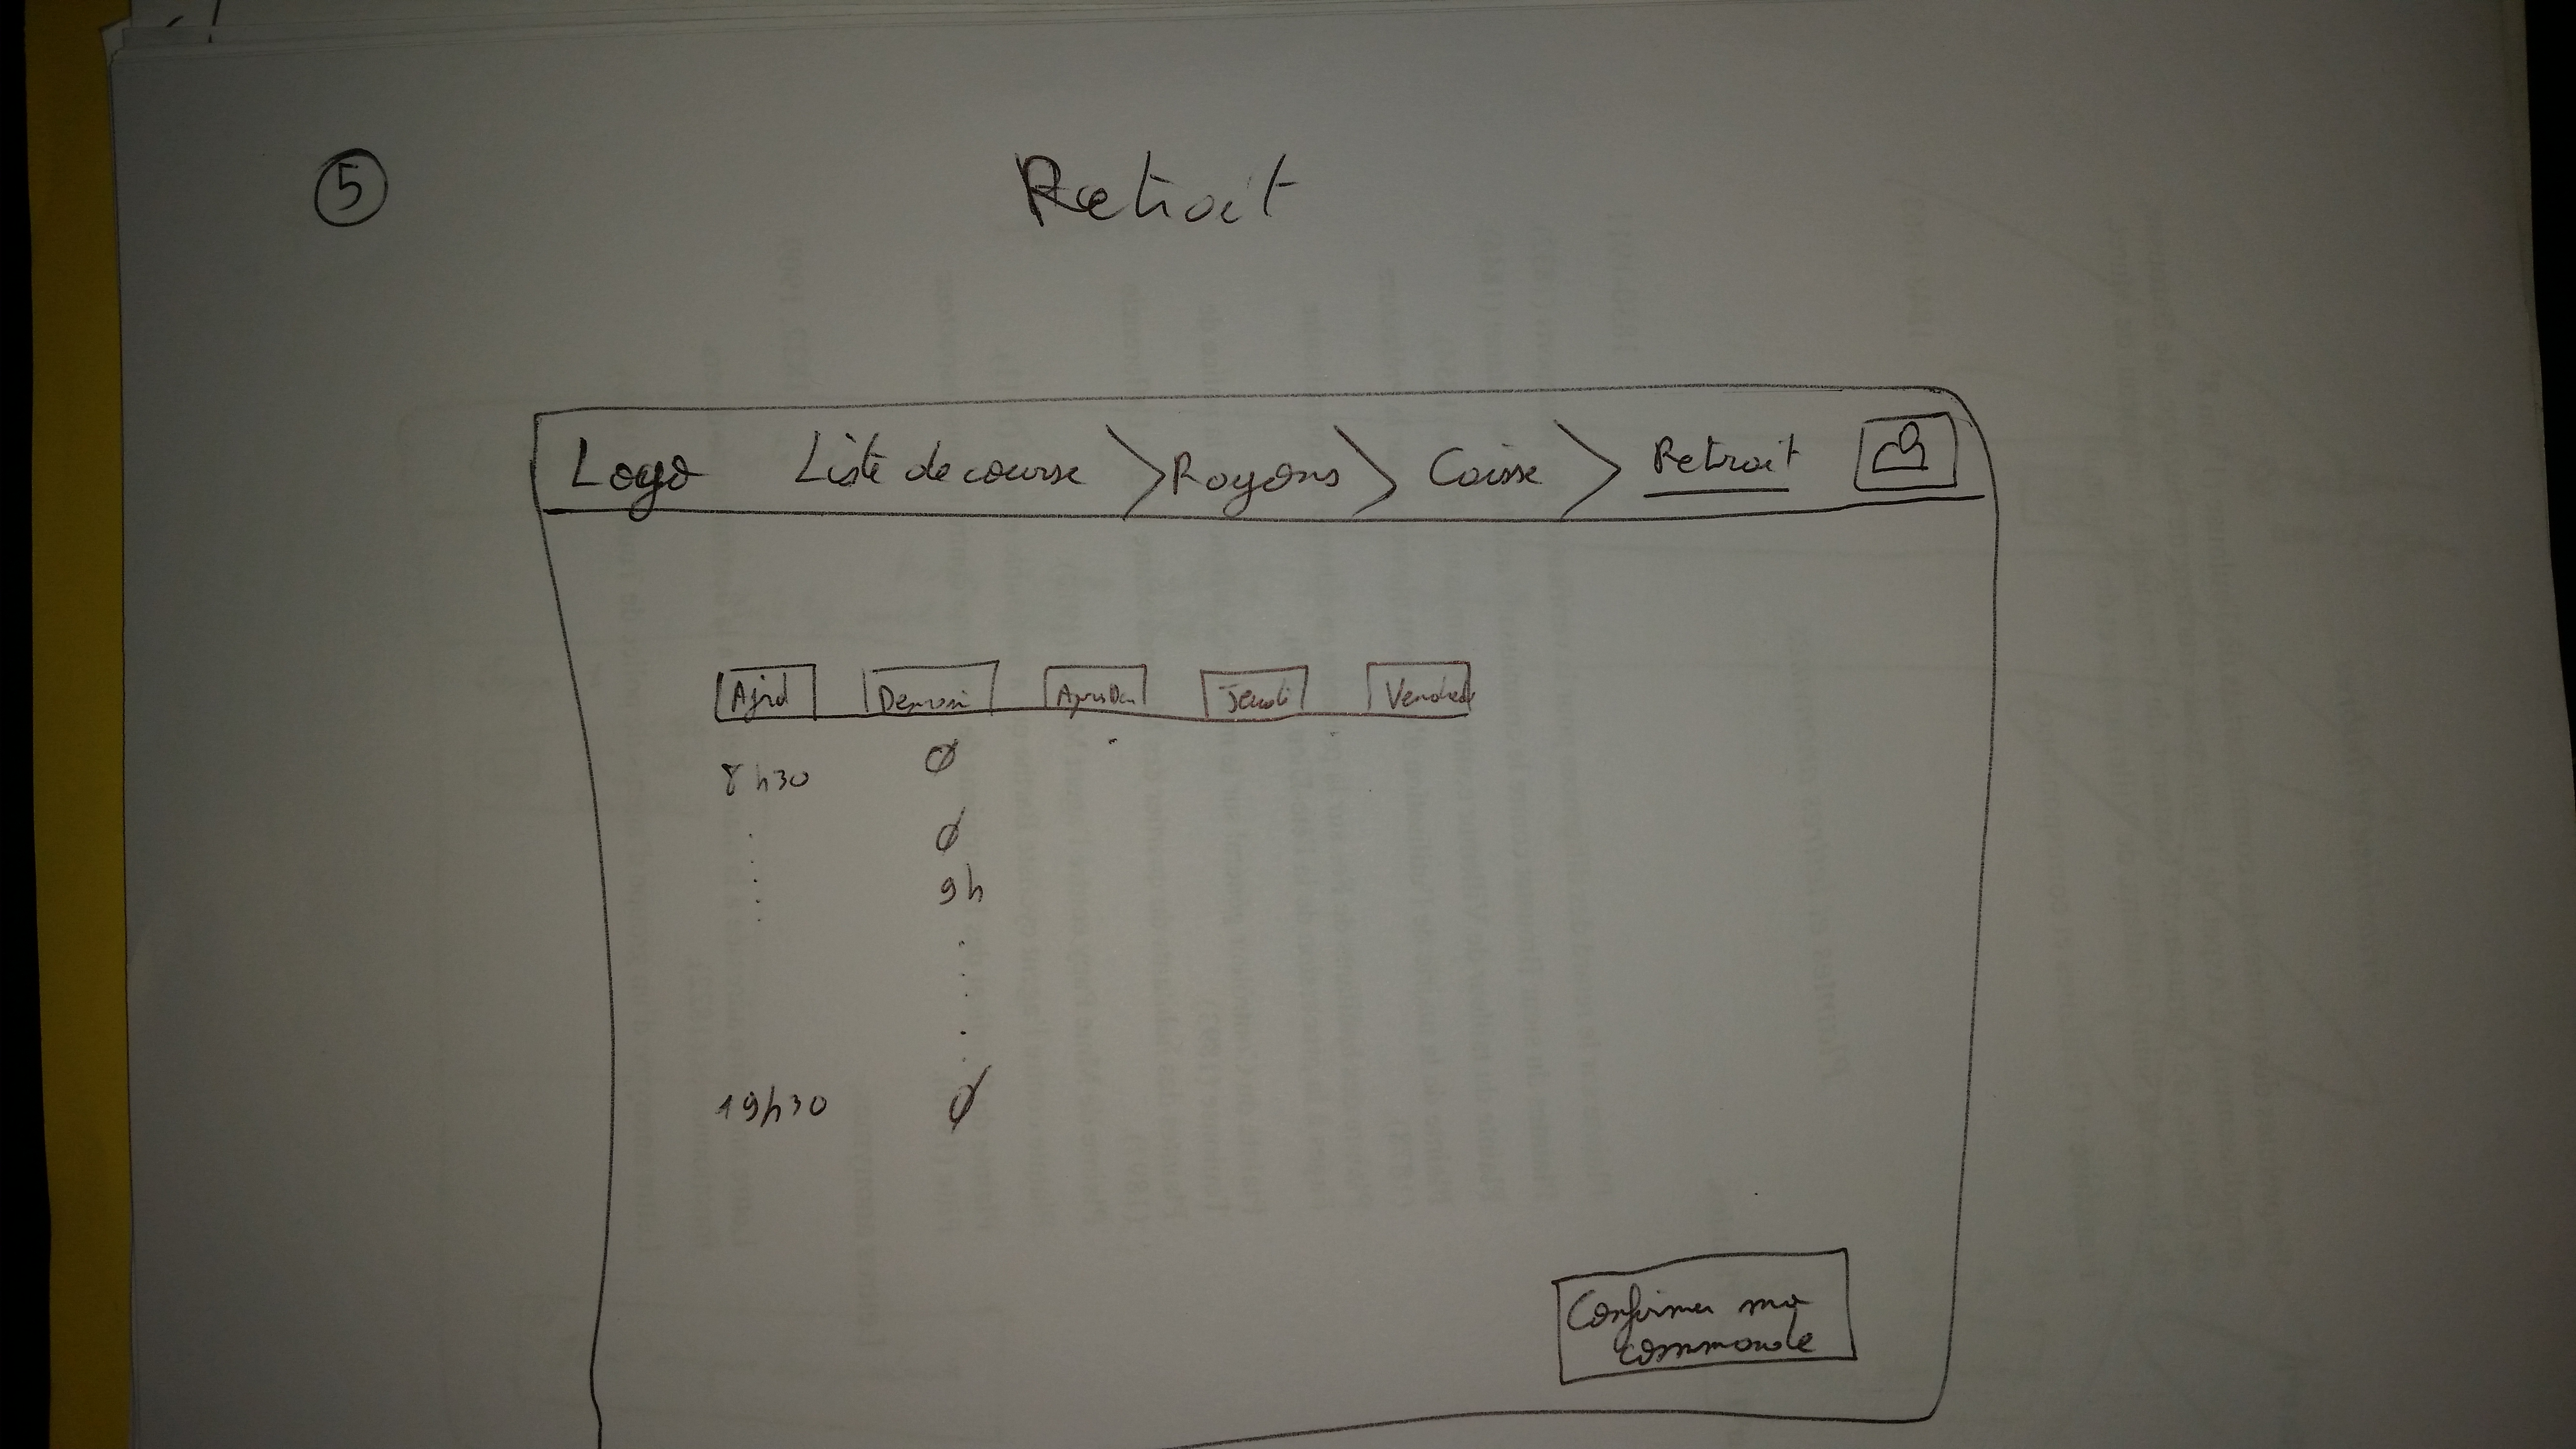 5
Retrait
Logo Liste de course > Rayons > Caisse > Retrait
Ajrd Demain AprèsDem Jeudi Vendredi
8h30 Ø
Ø
9h
19h30 Ø
Confirmer ma
commande